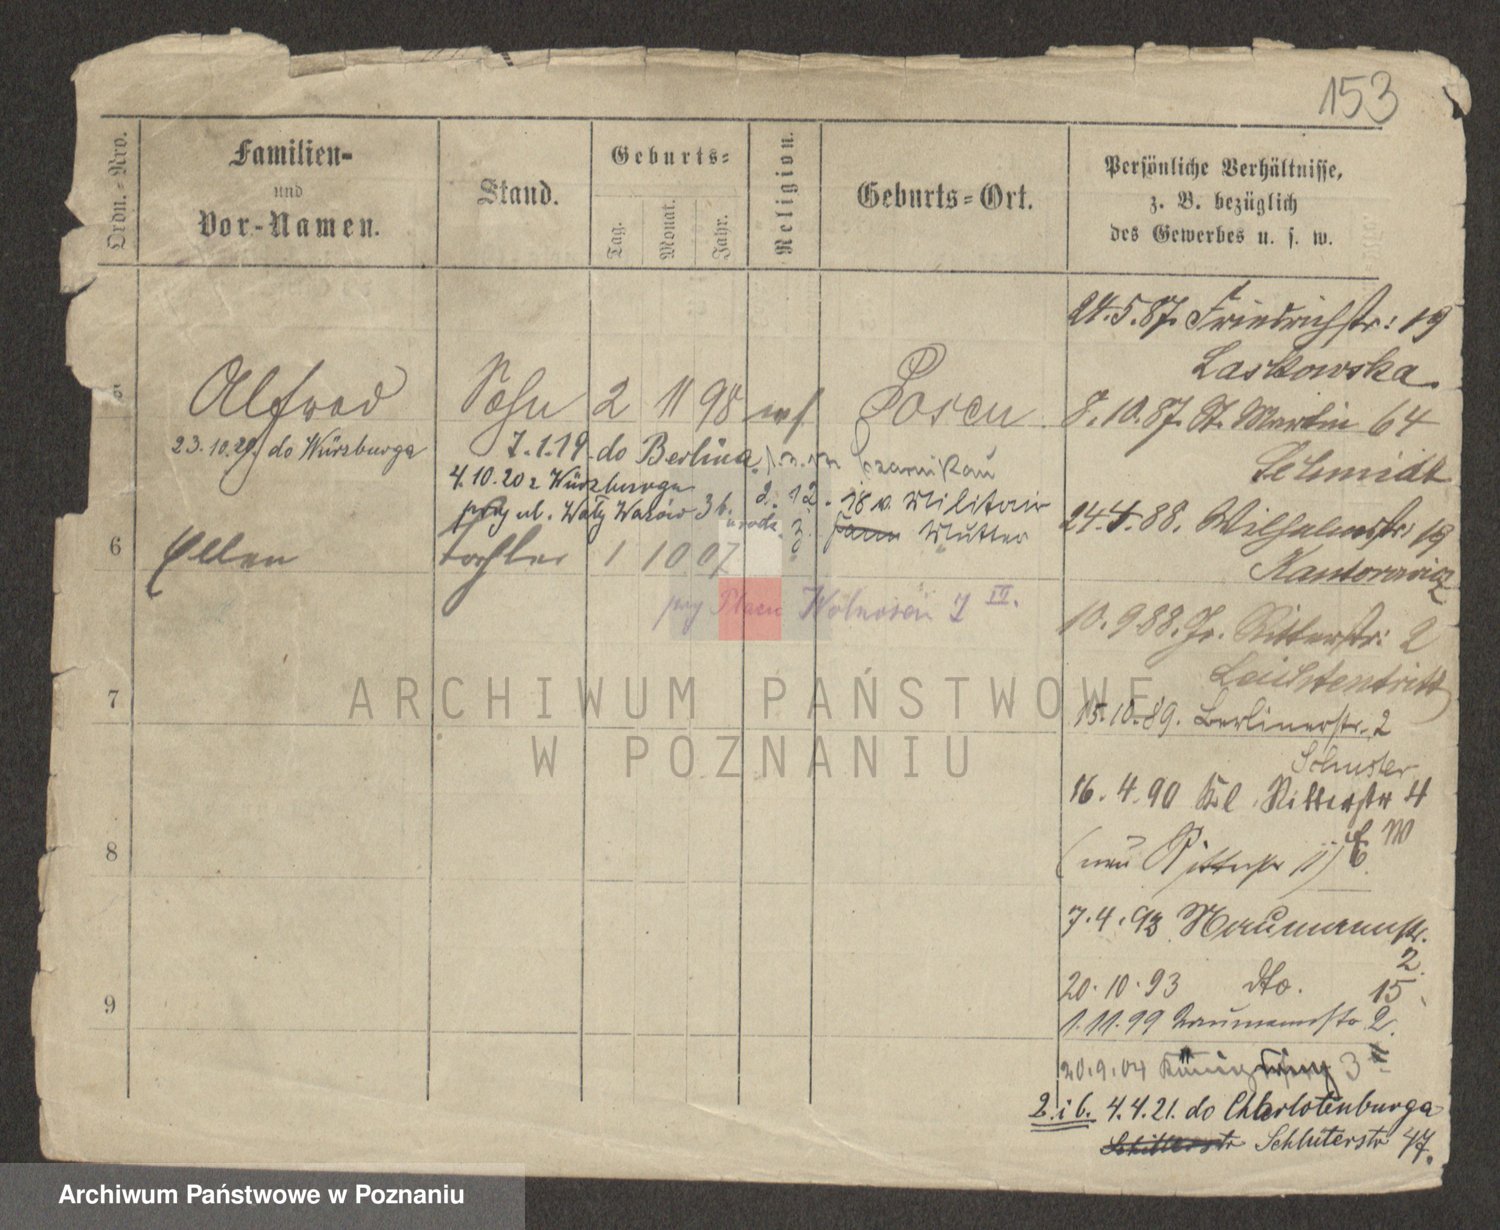 153
Ordn.=Nro.
Familien-
und
Vor-Namen.
Stand.
Geburts=
Tag.
Monat.
Jahr.
Religion.
Geburts=Ort.
Persönliche Verhältnisse,
z. B. bezüglich
des Gewerbes u. s. w.
24.5.87. Friedrichstr: 19
Laskowska.
5 Alfred Sohn 2 11 98 Posen
8.10.87. St. Martin 64
23.10.20. do Würzburga
7.1.19. do Berlina Czarnikau
Schmidt
4.10.20 z Würzburga
2. 12. 18 v. Militair
przy ul. Wały Wazów 36.
z. Mutter
24.4.88. Wilhelmstr: 19
6 Ellen tochter 1 10 07
Kantorowicz
przy Placu Wolności 7 III.
10.9.88. Gr. Ritterstr: 2
Leichtentritt
7
ARCHIWUM PAŃSTWOWE
15.10.89. Berlinerstr. 2
W POZNANIU
Schuster
16.4.90 Kl. Ritterstr 4
8
(neu Ritterstr 1)
7.4.93 Naumannstr.
2.
9
20.10.93 dto. 15
1.11.99 Naumannstr 2.
20.9.04 Königsring 3
2 i 6. 4.4.21. do Charlotenburga
Schillerstr Schlüterstr 47.
Archiwum Państwowe w Poznaniu